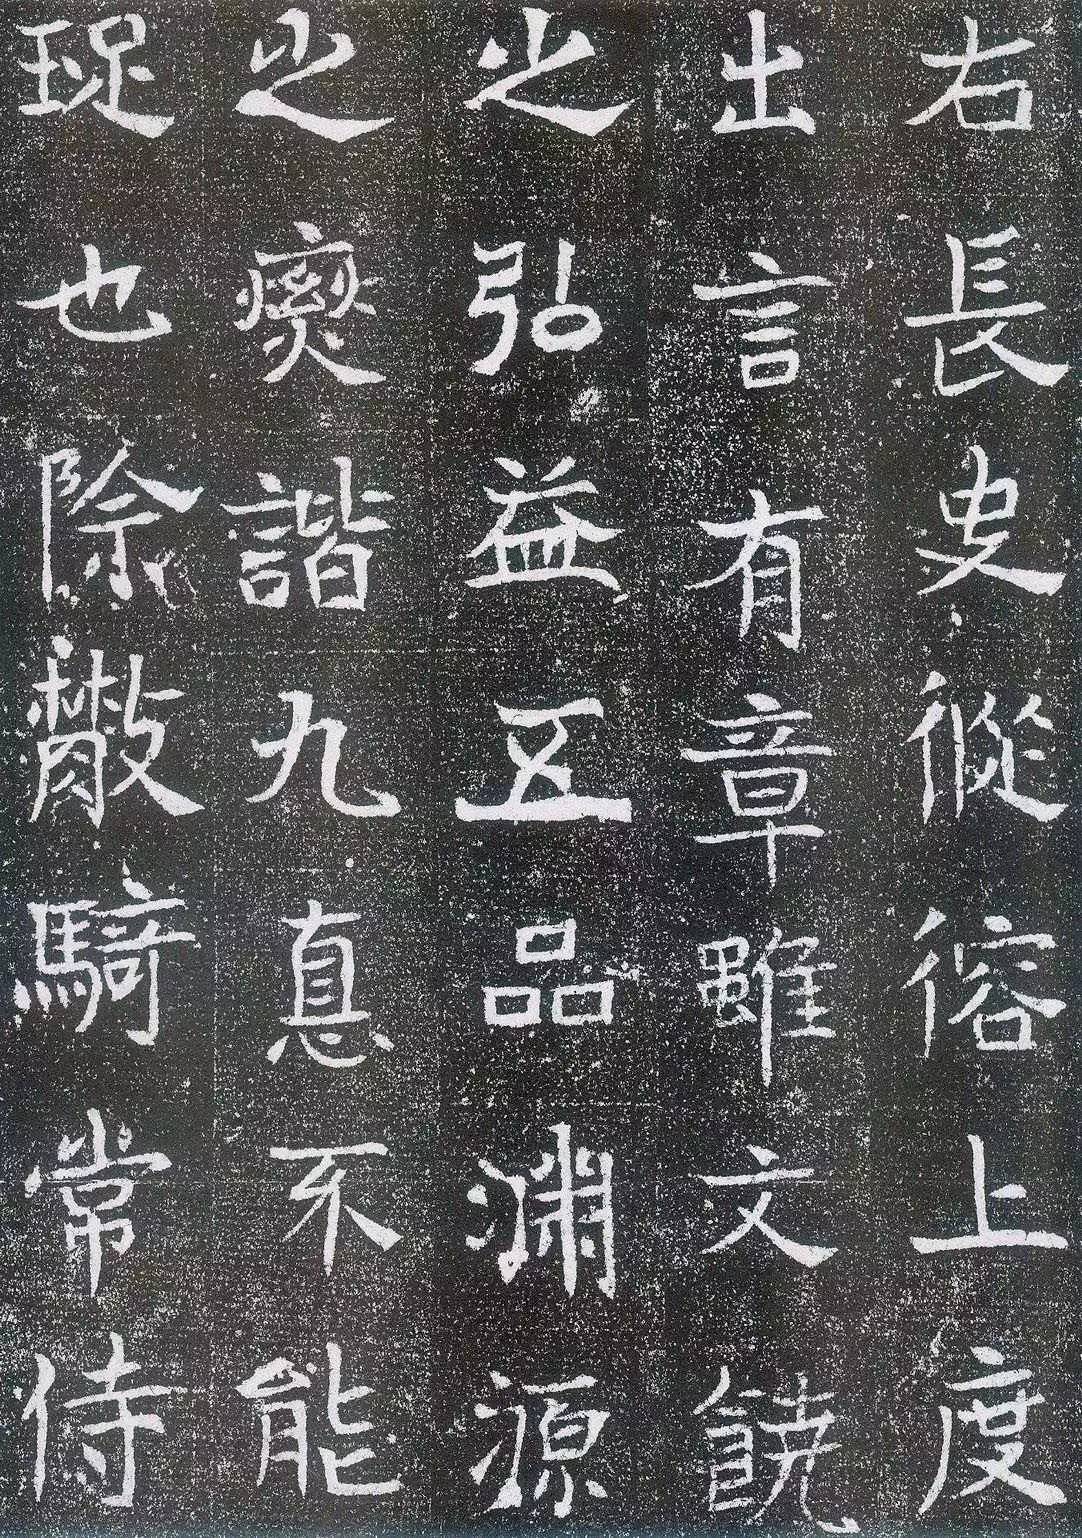 右長史從㣑上度
出言有章雖文饒
之弘益五品淵源
之燮諧九悳不能
也除散騎常侍